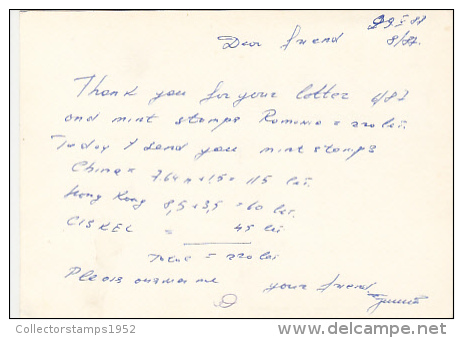 29 X 87
Dear friend 8/87.
Thank you for your letter 6/87
and mint stamps Romania = 220 lei.
Today I send you mint stamps
China = 115 lei.
Hong Kong 8,5+3,5 = 60 lei.
CISKEI = 45 lei
= 220 lei
Please answer me your friend
Collectorstamps1952
delcampe.net